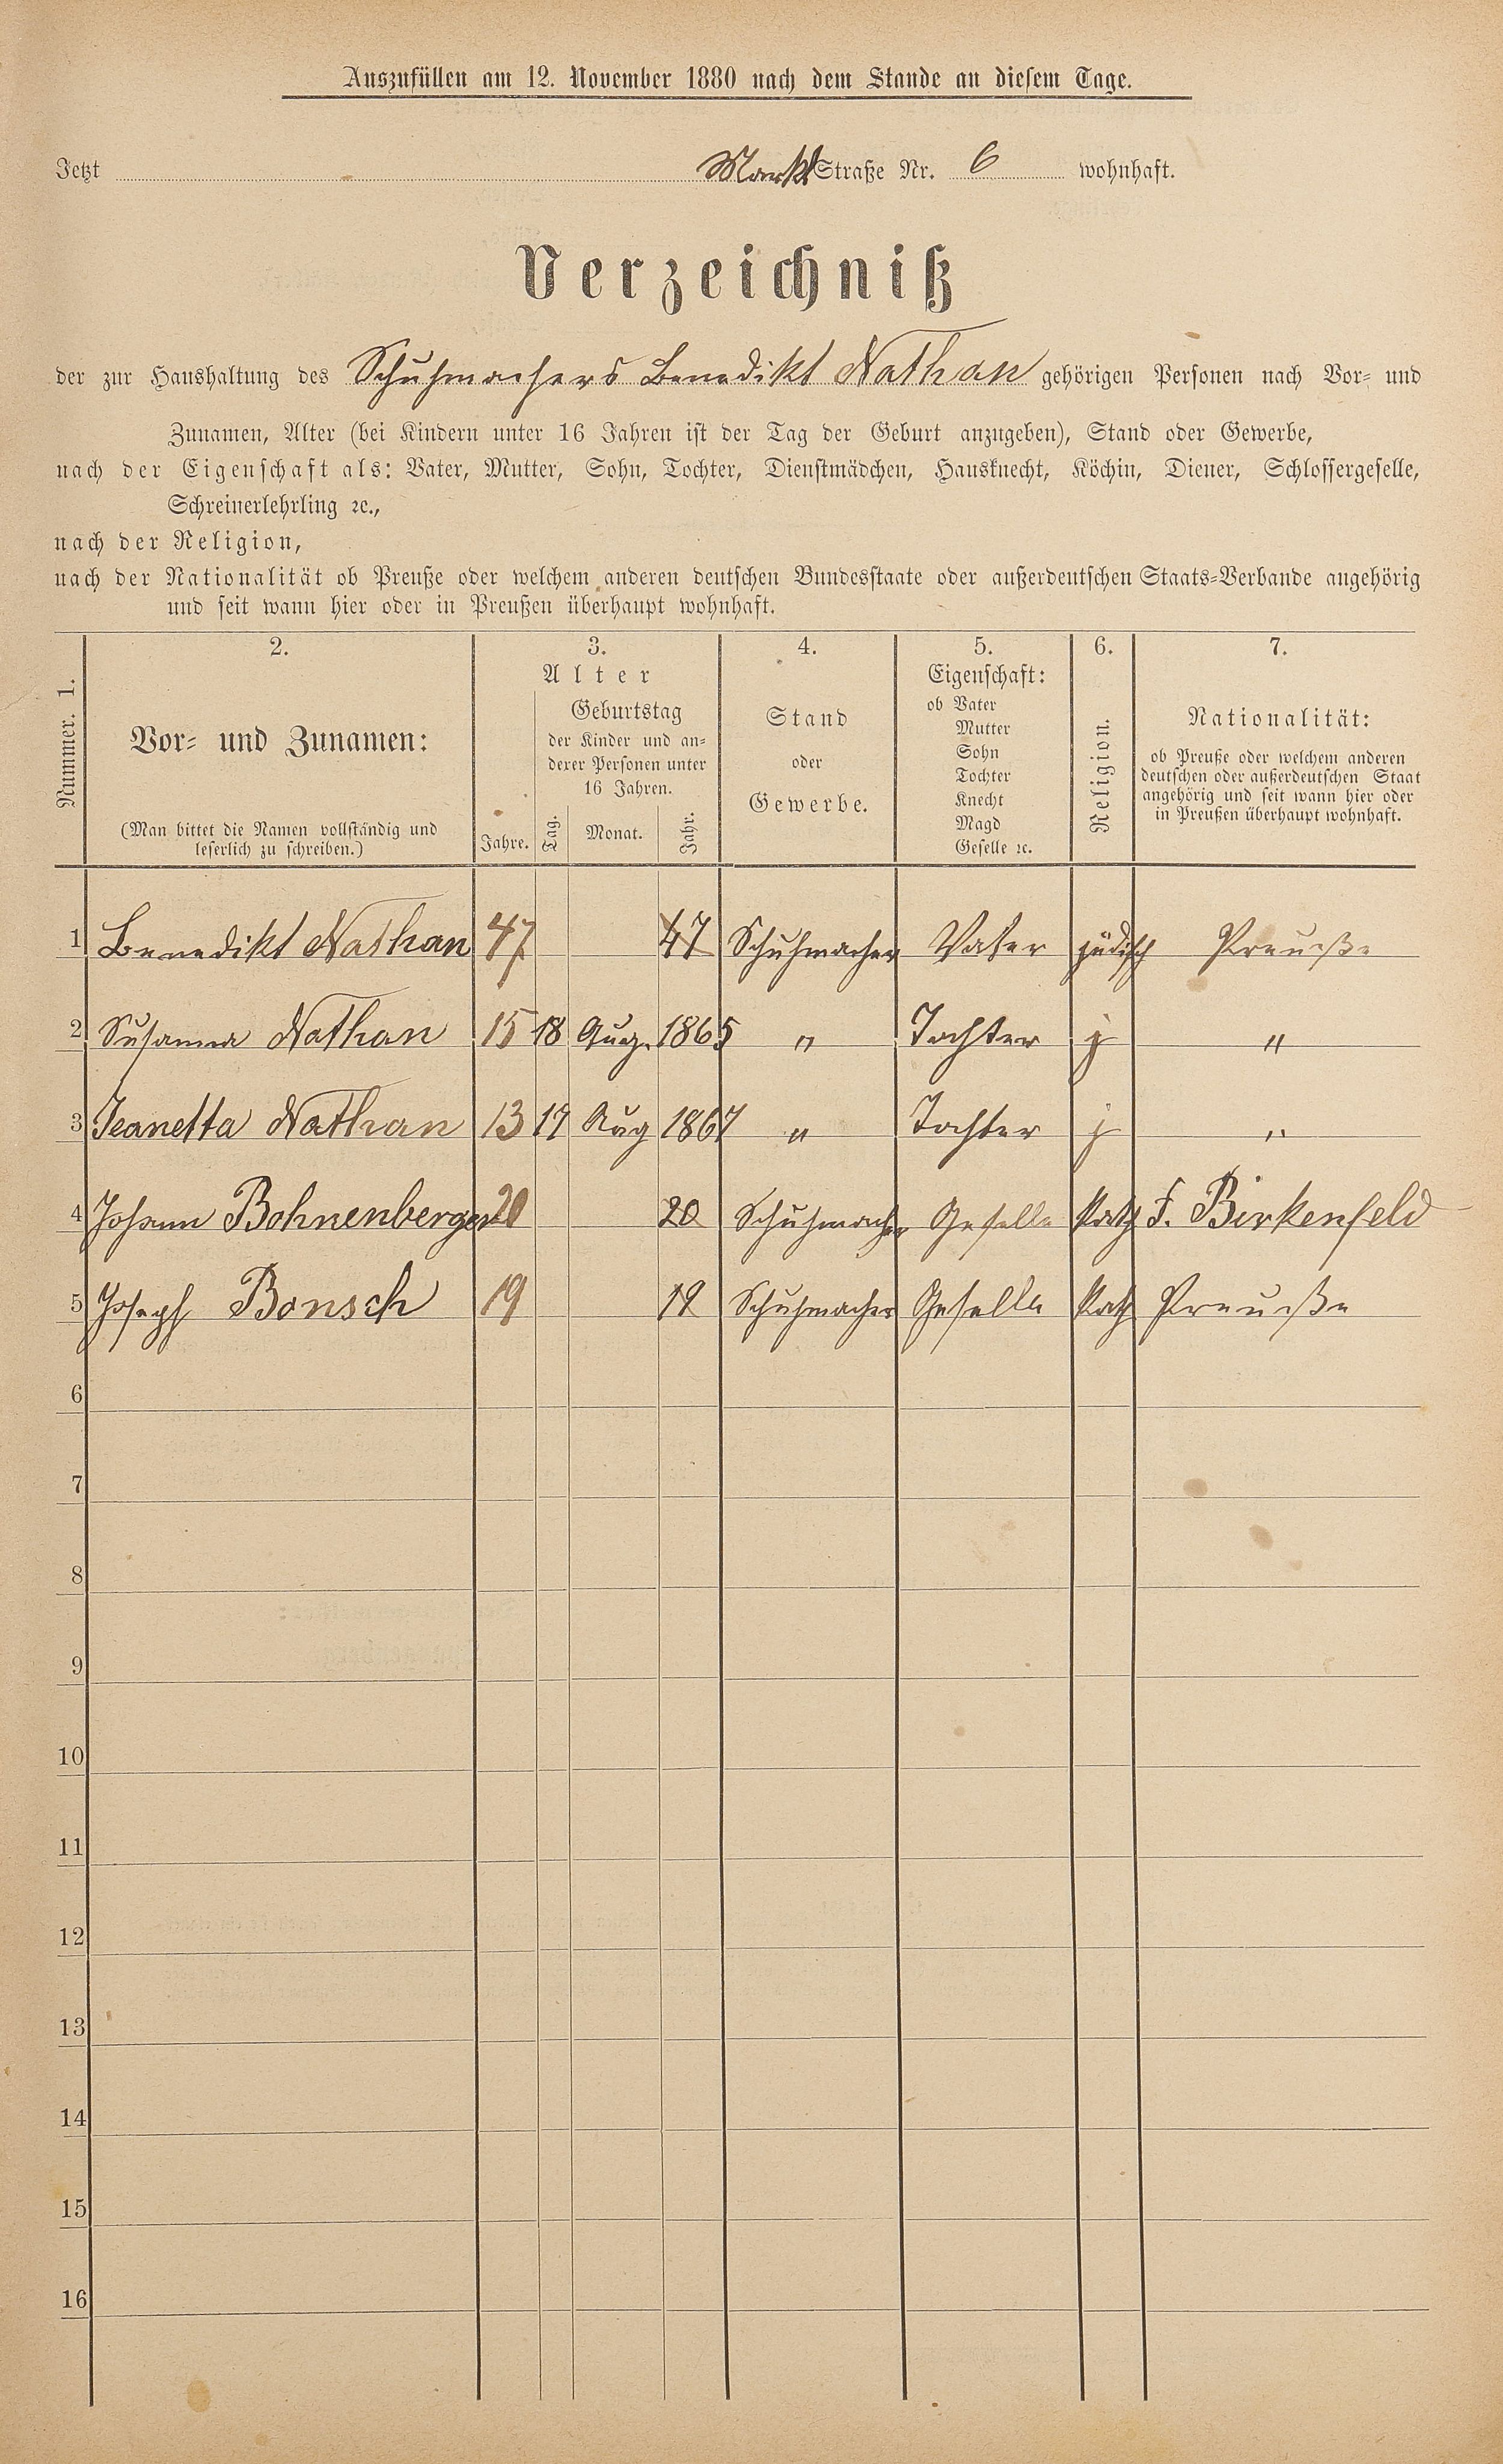 Auszufüllen am 12. November 1880 nach dem Stande an diesem Tage.
Jetzt Markt Straße Nr. 6 wohnhaft.
Verzeichniß
der zur Haushaltung des Schuhmachers Benedikt Nathan gehörigen Personen nach Vor- und
Zunamen, Alter (bei Kindern unter 16 Jahren ist der Tag der Geburt anzugeben), Stand oder Gewerbe,
nach der Eigenschaft als: Vater, Mutter, Sohn, Tochter, Dienstmädchen, Hausknecht, Köchin, Diener, Schlossergeselle,
Schreinerlehrling ꝛc.,
nach der Religion,
nach der Nationalität ob Preuße oder welchem anderen deutschen Bundesstaate oder außerdeutschen Staats-Verbande angehörig
und seit wann hier oder in Preußen überhaupt wohnhaft.
Nummer. 1.
2.
Vor- und Zunamen:
(Man bittet die Namen vollständig und
leserlich zu schreiben.)
3.
Alter
Jahre.
Geburtstag
der Kinder und an-
derer Personen unter
16 Jahren.
Tag. Monat. Jahr.
4.
Stand
oder
Gewerbe.
5.
Eigenschaft:
ob Vater
Mutter
Sohn
Tochter
Knecht
Magd
Geselle ꝛc.
6.
Religion.
7.
Nationalität:
ob Preuße oder welchem anderen
deutschen oder außerdeutschen Staat
angehörig und seit wann hier oder
in Preußen überhaupt wohnhaft.
1 Benedikt Nathan 47 47 Schuhmacher Vater jüdisch Preuße
2 Susanna Nathan 15 18 Aug. 1865 " Tochter j "
3 Jeanetta Nathan 13 17 Aug 1867 " Tochter j "
4 Johann Bohnenberger 20 20 Schuhmacher Geselle Kath F. Birkenfeld
5 Joseph Bonsch 19 19 Schuhmacher Geselle Kath Preuße
6
7
8
9
10
11
12
13
14
15
16